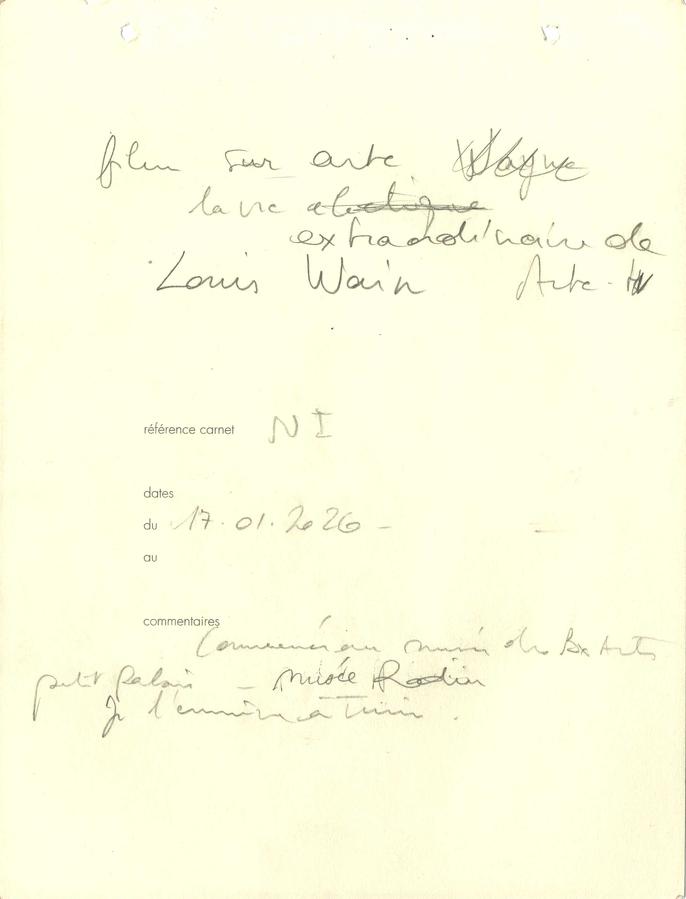 film sur arte
la vie electrique
extraordinaire de
Louis Wain Arte.tv
référence carnet N I
dates
du 17.01.2026 -
au
commentaires
Commencé au musée des Bx Arts
petit palais - musée Rodin
Je l'emmène à